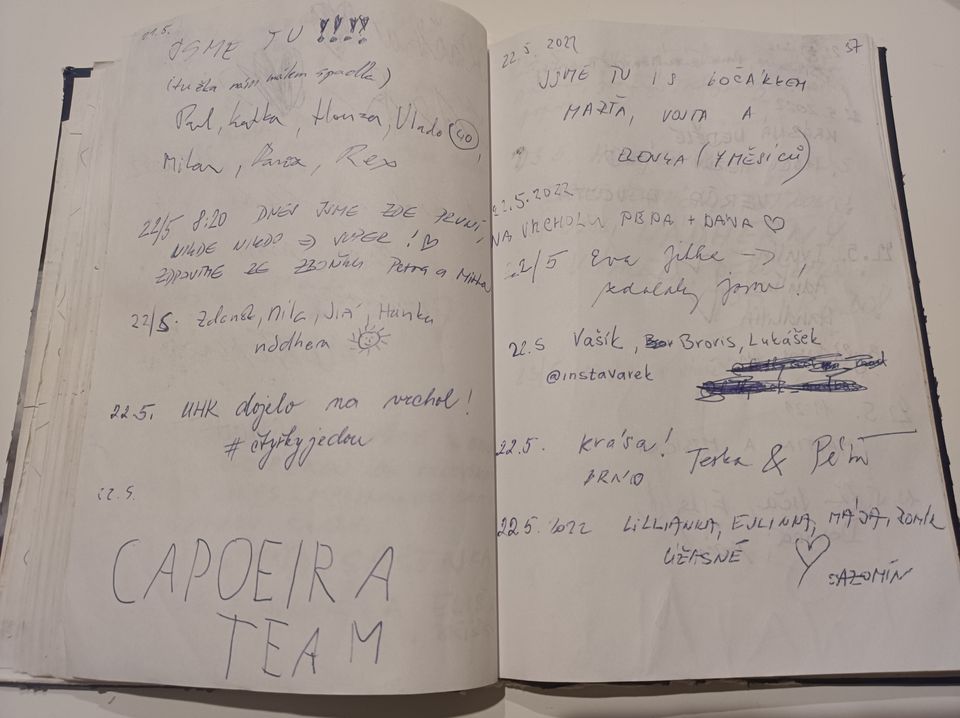 21.5.
JSME TU !!!!
(tužka nám málem spadla)
Pavl, Katka, Honza, Vlado (40),
Milan, Rex
22/5 8:20 DNES JSME ZDE PRVNÍ,
NIKDE NIKDO => VUPER! ♡
ZDRAVÍME ZE Petra a
22/5. Zdeněk, Míla, Jiří, Hanka
nádhera
22.5. UHK dojelo na vrchol!
#čtyřkyjedou
22.5.
CAPOEIRA
TEAM
37
22.5.2022
JSME TU I S KOČÁRKEM
MÁŤA, VOJTA A
ELENKA (7 MĚSÍCŮ)
22.5.2022
NA VRCHOLU + DÁNA ♡
22/5 Eva Jitka ->
jsme!
22.5 Vašík, Broris, Lukášek
@instavarek
22.5. krása! Terka &
BRNO
22.5.2022 LILLIANKA, EVLINKA, MÁJA, TOMÍK
ÚŽASNÉ ♡